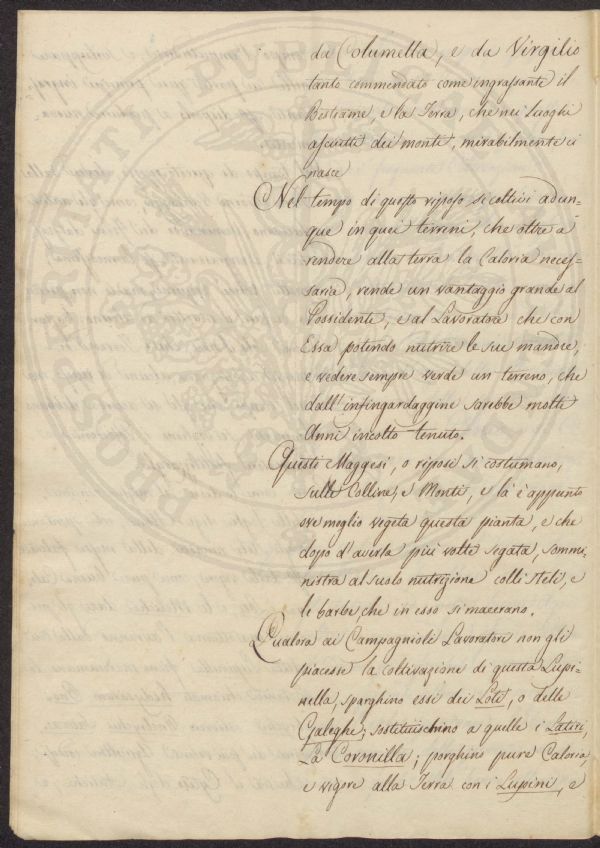 da Columella, e da Virgilio
tanto commendato come ingrassante il
Bestiame, e la Terra, che nei Luoghi
asciutti dei monti, mirabilmente ci
nasce
Nel tempo di questo riposo si coltivi adun-
que in quei terreni, che oltre a
rendere alla terra la Caloria neces-
saria, rende un vantaggio grande al
Possidente, e al Lavoratore che con
Essa potendo nutrire le sue mandre,
e vedere sempre verde un terreno, che
dall'infingardaggine sarebbe molti
Anni incolto tenuto.
Questi Maggesi, o riposi si costumano,
sulle Colline, e Monti, e là è appunto
ove meglio vegeta questa pianta, e che
dopo d'averla più volte segata, sommi-
nistra al suolo nutrizione colli steli, e
le barbe che in esso si macerano.
Qualora ai Campagnioli Lavoratori non gli
piacesse la coltivazione di questa Lupi-
nella, sparghino essi dei Loti, o delle
Galeghe; sostituischino a quelle i Latiri,
La Coronilla; porghino pure Caloria,
e vigore alla Terra con i Lupini, e
PROSTRATI